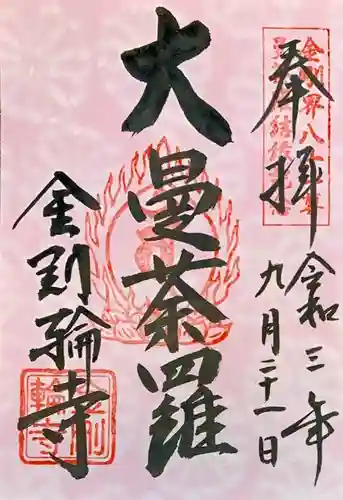 奉拝
令和三年
九月二十一日
大曼荼羅
金剛輪寺